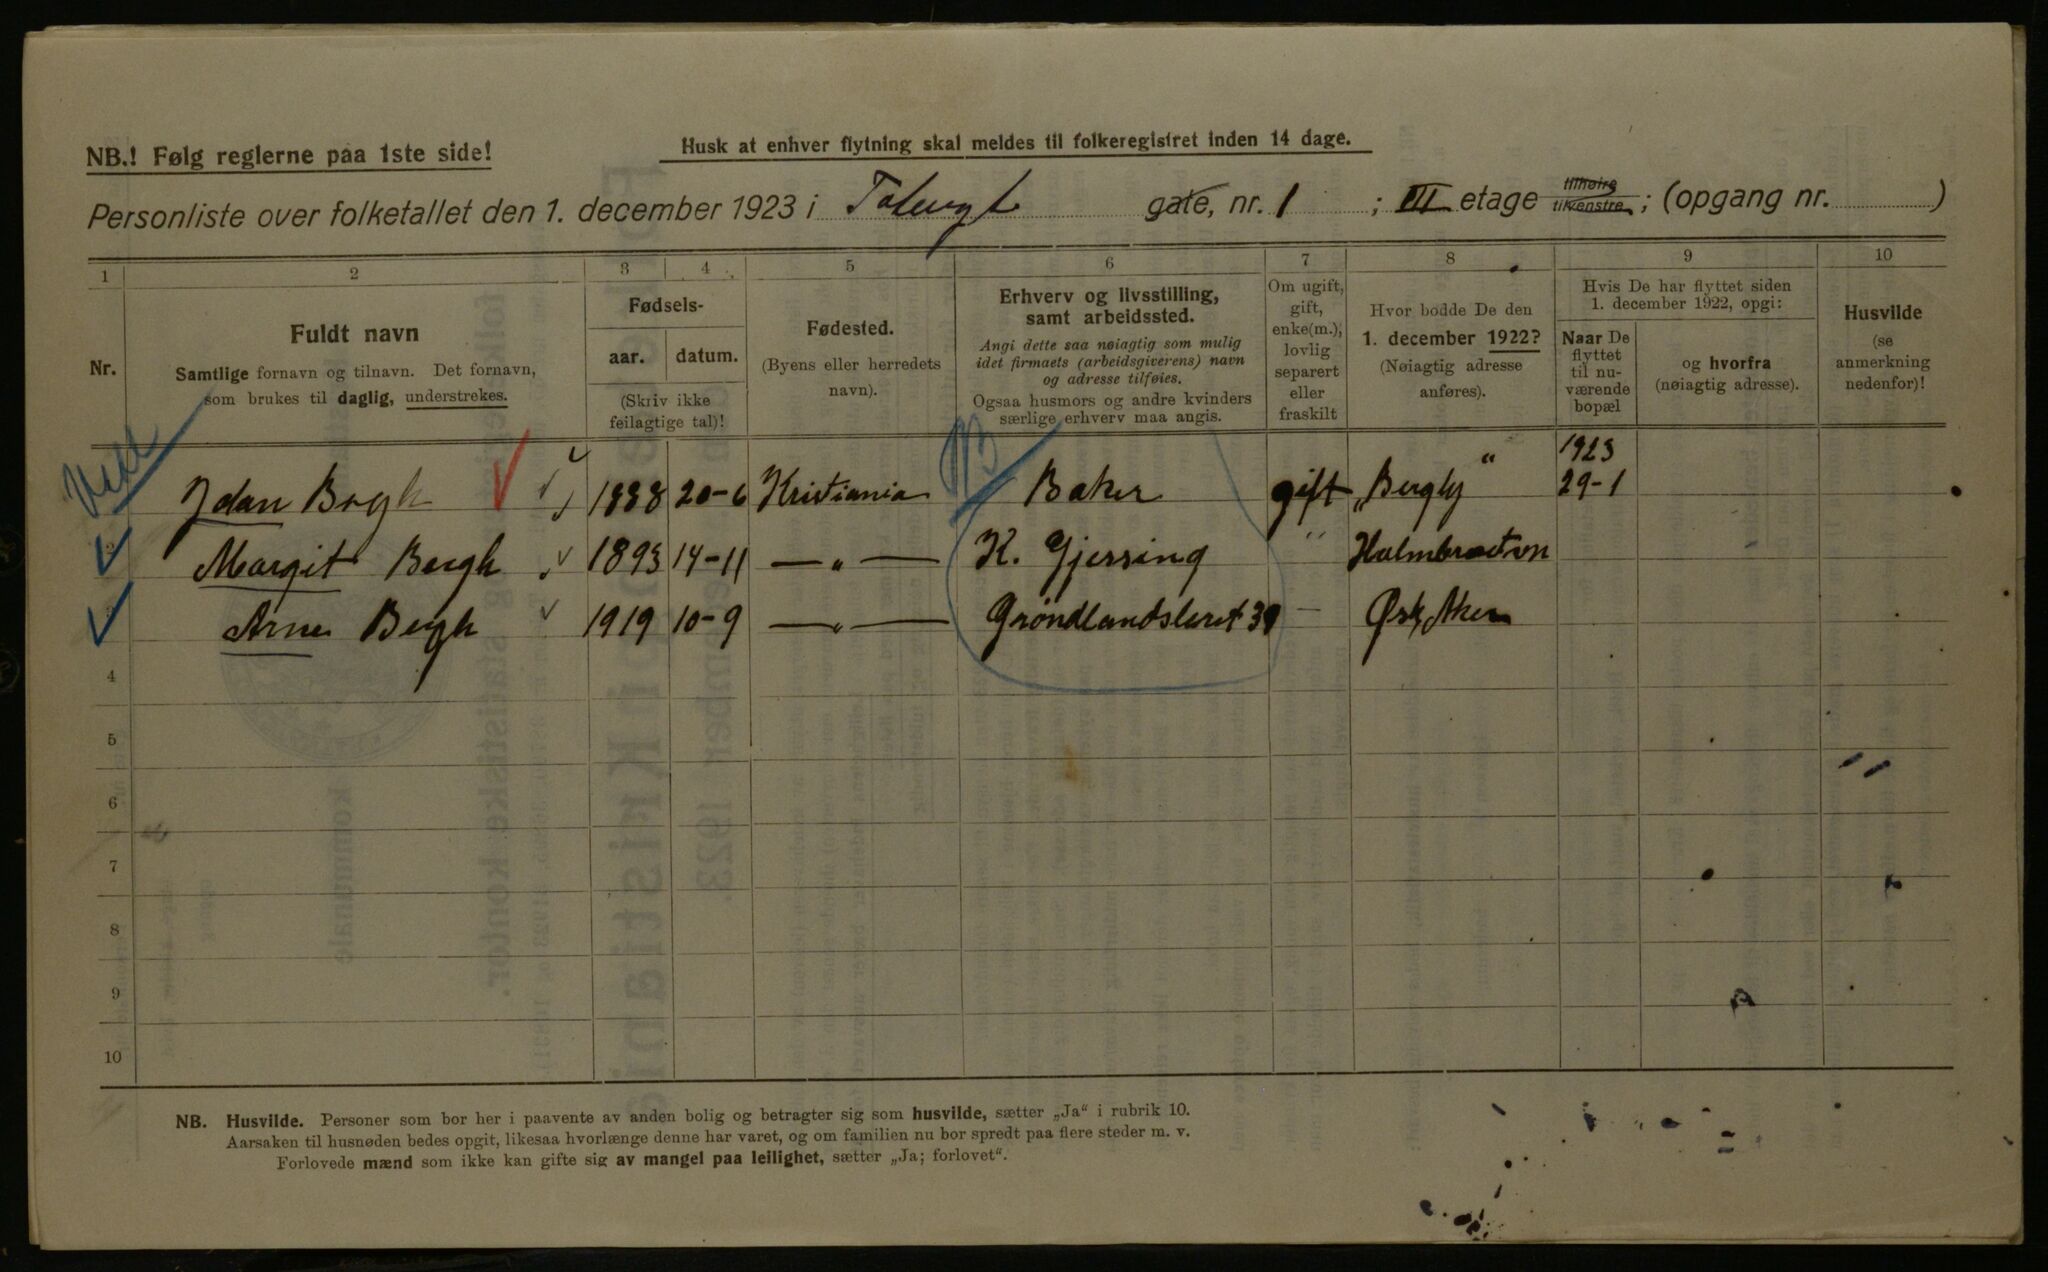 NB.! Følg reglerne paa 1ste side!
Husk at enhver flytning skal meldes til folkeregistret inden 14 dage.
Personliste over folketallet den 1. december 1923 i gate, nr. 1 ; III etage tilhøire tilvenstre ; (opgang nr. )
1 2 3 4 5 6 7 8 9 10
Nr.
Fuldt navn
Samtlige fornavn og tilnavn. Det fornavn,
som brukes til daglig, understrekes.
Fødsels-
aar. datum.
(Skriv ikke
feilagtige tal)!
Fødested.
(Byens eller herredets
navn).
Erhverv og livsstilling,
samt arbeidssted.
Angi dette saa nøiagtig som mulig
idet firmaets (arbeidsgiverens) navn
og adresse tilføies.
Ogsaa husmors og andre kvinders
særlige erhverv maa angis.
Om ugift,
gift,
enke(m.),
lovlig
separert
eller
fraskilt
Hvor bodde De den
1. december 1922?
(Nøiagtig adresse
anføres).
Hvis De har flyttet siden
1. december 1922, opgi:
Naar De
flyttet
til nu-
værende
bopæl
og hvorfra
(nøiagtig adresse).
Husvilde
(se
anmerkning
nedenfor)!
1923
Bergh 1888 20-6 Kristiania Baker gift „Bergly" 29-1
Margit Bergh 1893 14-11 —„— K. Gjersing " Holmbraatvn
Arne Bergh 1919 10-9 —„— Gröndlandsleret 39 — Øst Aker
4
5
6
7
8
9
10
NB. Husvilde. Personer som bor her i paavente av anden bolig og betragter sig som husvilde, sætter „Ja" i rubrik 10.
Aarsaken til husnøden bedes opgit, likesaa hvorlænge denne har varet, og om familien nu bor spredt paa flere steder m. v.
Forlovede mænd som ikke kan gifte sig av mangel paa leilighet, sætter „Ja; forlovet".